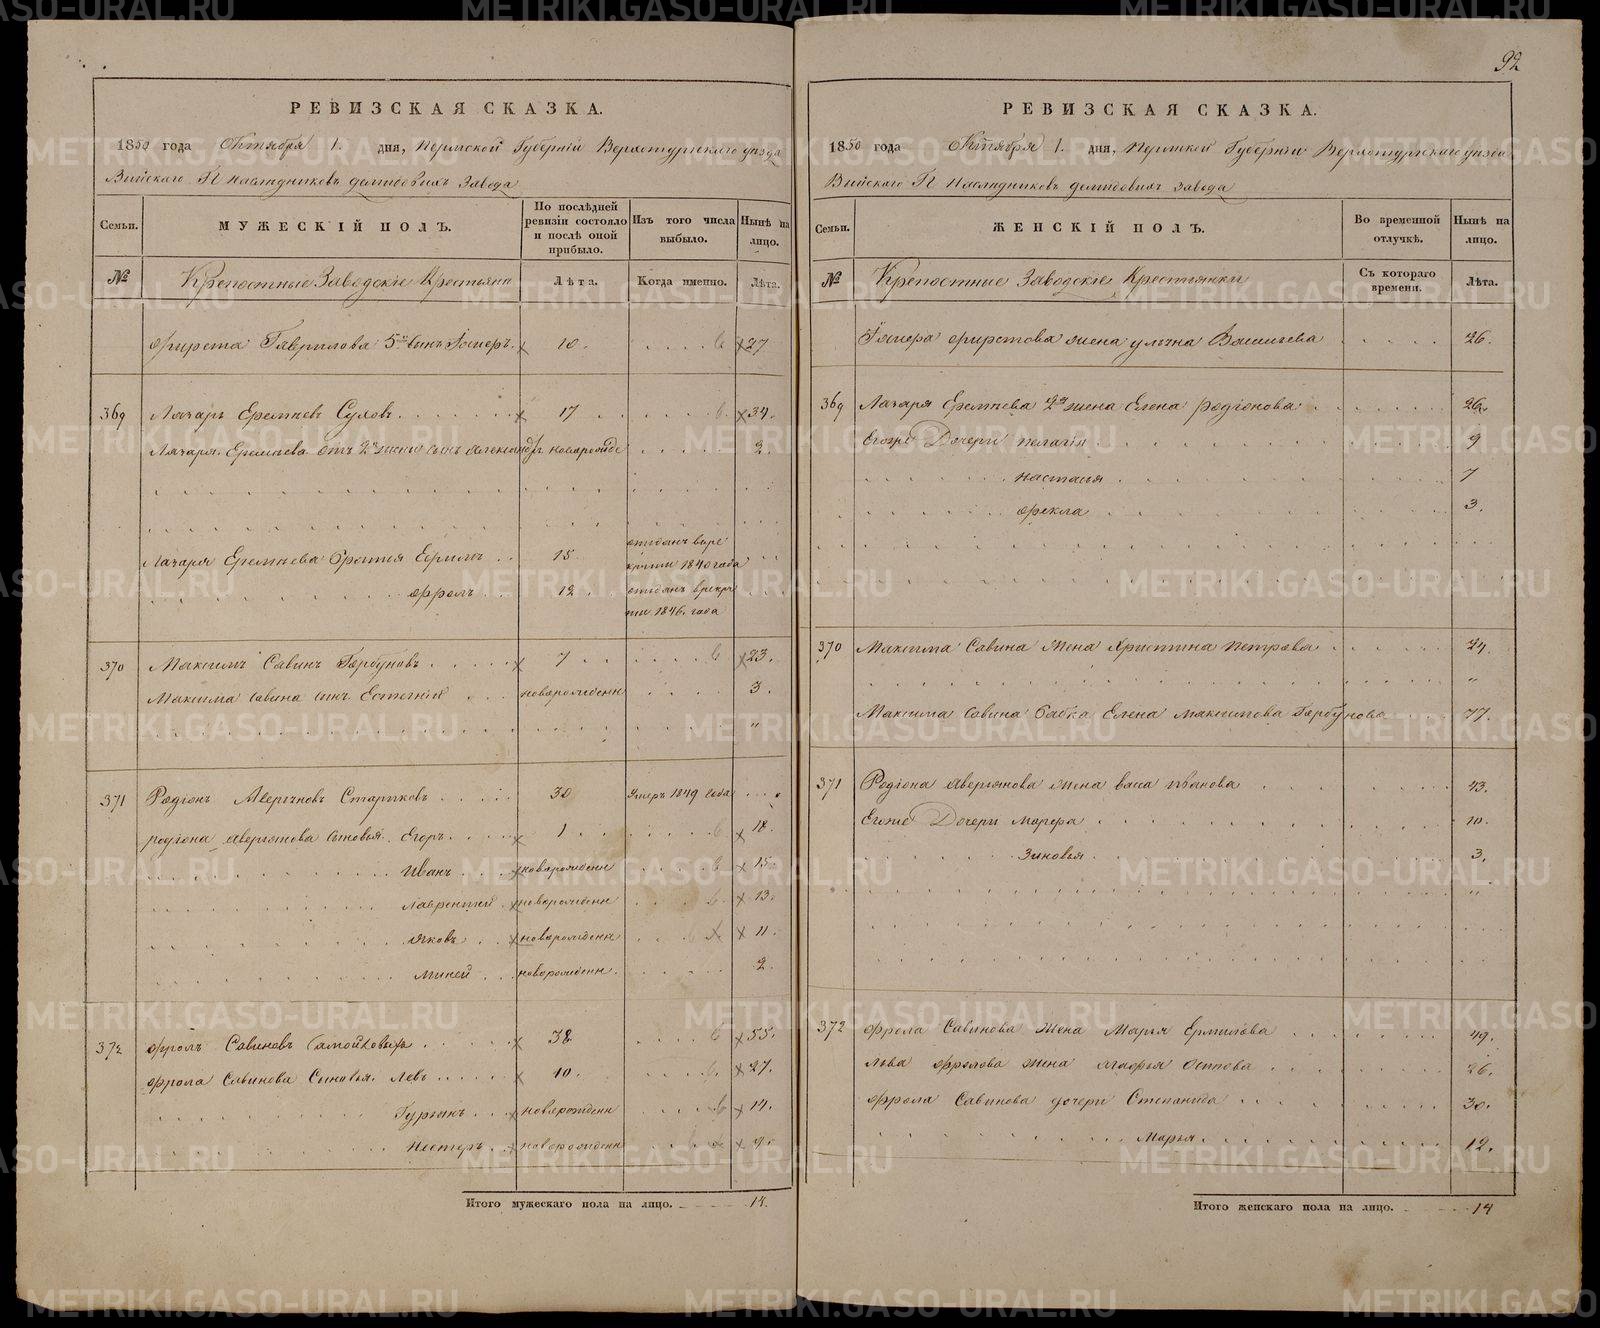 92
РЕВИЗСКАЯ СКАЗКА.
1850 года Октября 1. дня, Пермской Губернiи Верхотурскаго уезда
Выйскаго П. Наследниковъ Демидовыхъ Завода
Семьи.
МУЖЕСКІЙ ПОЛЪ.
По послѣдней ревизіи состояло и послѣ оной прибыло.
Изъ того числа выбыло.
Нынѣ на лицо.
№ Крепостные Заводскіе Крестьяна
Лѣта.
Когда именно.
Лѣта.
Фирста Гаврилова 5й сынъ 10. 27
369 Лазарь Еремѣевъ Суловъ 17 34.
Лазаря Еремѣева отъ 2й жены сынъ Александръ новорожде 2.
Лазаря Еремѣева братья Ефимъ 15 отданъ в рекруты 1840 года
Фролъ 12 отданъ в рекруты 1846. года
370 Максимъ Савинъ Горбуновъ 7 23.
Максима Савина сынъ Евгений новорожденн 3.
371 Родіонъ Аверьяновъ Стариковъ 30 умеръ 1849 года
Родіона Аверьянова сыновья Егоръ 1 18.
Иванъ новорожденн 15.
Лаврентий новорожденн 13.
Яковъ новорожденн 11.
Миней новорожденн. 2.
372 Фролъ Савиновъ 38 55.
Фрола Савинова Сыновья. Левъ 10. 27.
Гурьянъ новорожденн 14.
Нестеръ новорожденн 9.
Итого мужескаго пола на лицо. 14.
РЕВИЗСКАЯ СКАЗКА.
1850 года Октября 1. дня, Пермской Губерніи Верхотурскаго уезда
Выйскаго П. Наследниковъ Демидовыхъ Завода
Семьи.
ЖЕНСКІЙ ПОЛЪ.
Во временной отлучкѣ.
Нынѣ на лицо.
№ Крепостные Заводскіе Крестьянки
Съ котораго времени.
Лѣта.
Фирстова жена Васильева 26.
369 Лазаря Еремѣева 2я жена Елена Родіонова 26.
Егоже Дочери Пелагія 9
Настасья 7
Фекла 3.
370 Максима Савина Жена Христина Петрова 24.
Максима Савина Бабка Елена Максимова Горбунова 77.
371 Родіона Аверьянова жена Васа Иванова 43.
Егоже Дочери Марфа 10.
Зиновья 3.
372 Фрола Савинова жена Марья Ермилова 49.
Льва Фролова жена Агафья Осипова 26.
Фрола Савинова дочери Степанида 30.
Марья 12.
Итого женскаго пола на лицо. 14
METRIKI.GASO-URAL.RU